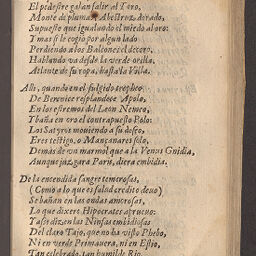 El pedestre galan salir al Toro,
Monte di plumas, Abestruz dorado,
Supuesto que igualando el miedo al oro:
Y mas si le cogio por algun lado
Perdiendo a los Balcones el decoro,
Hablando va desde la verde orilla,
Atlante de su ropa, hasta la Villa.
Alli, quando en el fulgido
De Berenice resplandece Apolo,
En los estremos del Leon Nemeo,
Y baña en oro el contrapuesto Polo:
Los Satyros moviendo a su deseo,
Eres testigo, o Mançanares solo,
Demas de un marmol que a la Venus Gnidia,
Aunque juzgara Paris, diera embidia.
De la encendida sangre temerosas,
(Como a lo que es salud credito devo)
Se bañan en las ondas amorosas,
Lo que dixere Hipocrates apruevo:
Ya se dizen las Ninfas embidiosas
Del claro Tajo, que no ha visto Phebo,
Ni en verde Primavera, ni en Estio,
Tan celebrado, tan humilde Rio.